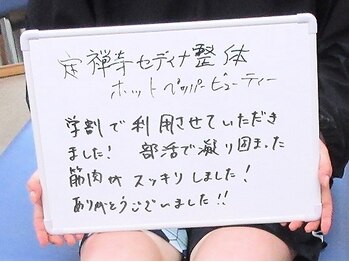 定禅寺セディナ整体
ホットペッパービューティー
学割で利用させていただき
ました! 部活で凝り固まった
筋肉がスッキリしました!
ありがとうございました!!